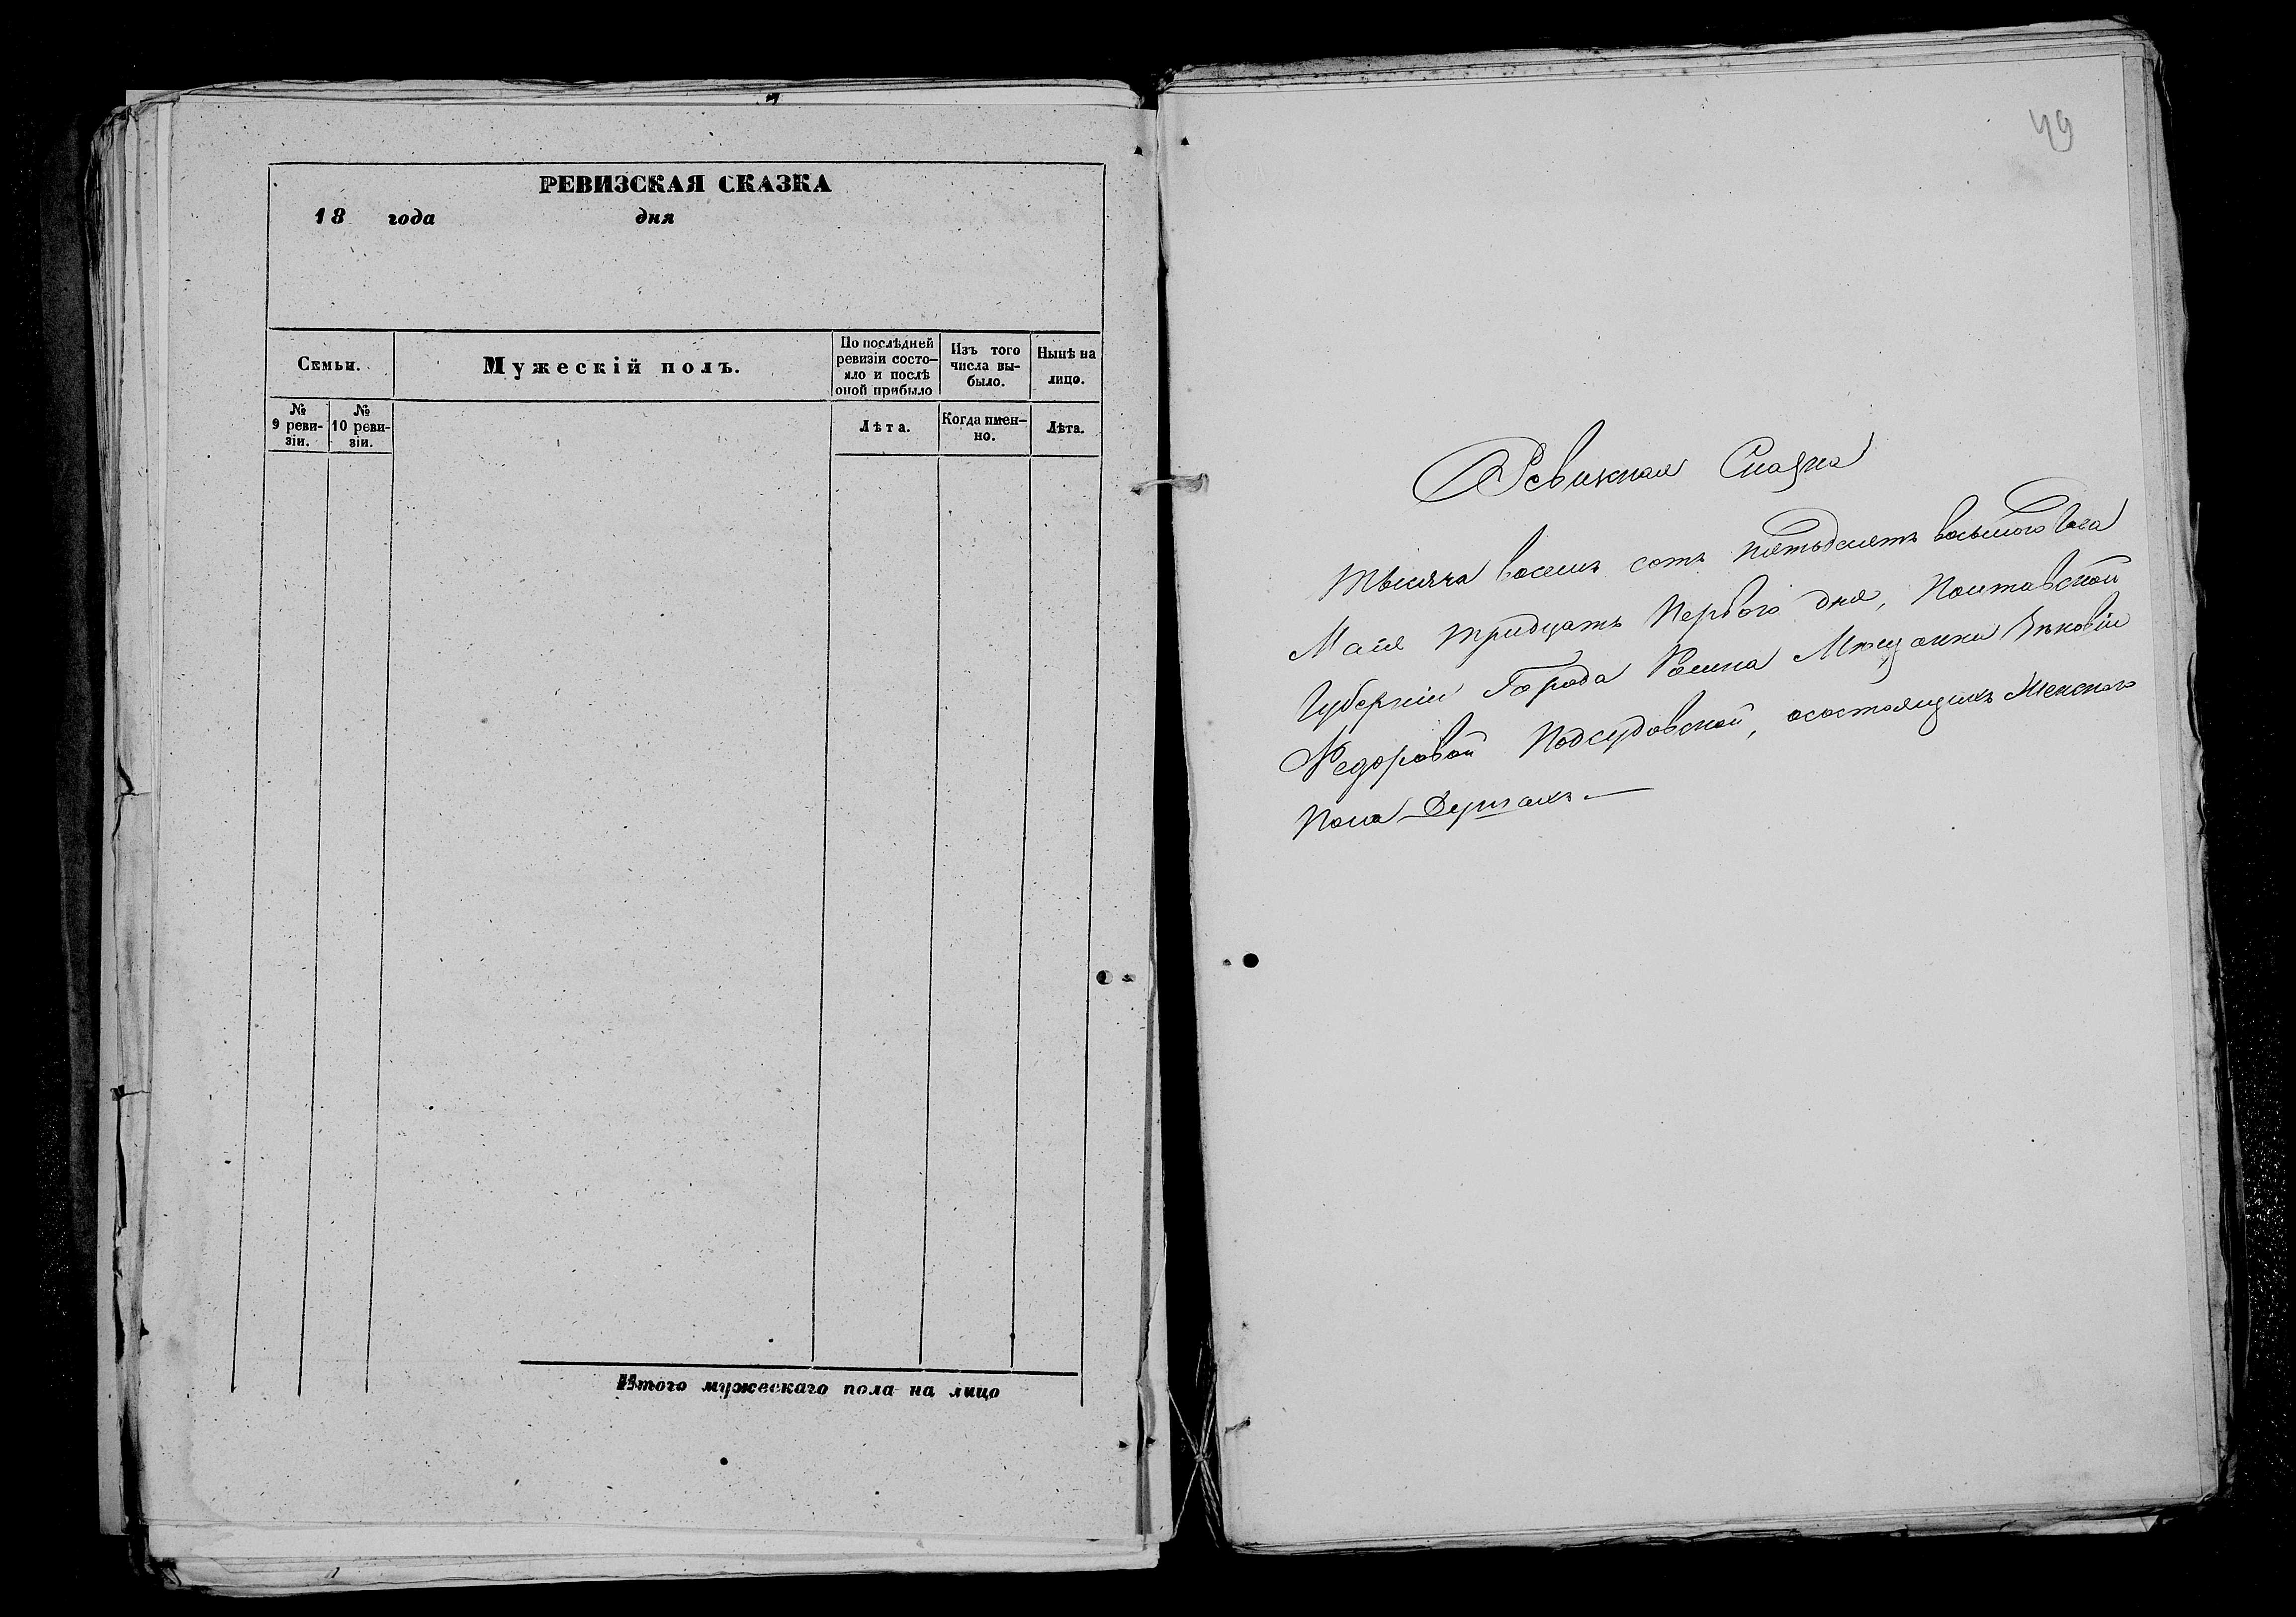 РЕВИЗСКАЯ СКАЗКА
18 года дня
Семьи.
Мужескій полъ.
По послѣдней
ревизіи состо-
яло и послѣ
оной прибыло
Изъ того
числа вы-
было.
Нынѣ на
лицо.
№
9 реви-
зіи.
№
10 реви-
зіи.
Лѣта.
Когда имен-
но.
Лѣта.
Итого мужескаго пола на лицо
49
Ревижная Сказка
Тысяча восемь сотъ пятьдесятъ восьмого Года
Маія тридцать Первого дня, Полтавской
Губерніи Города Ромна Мѣщанки
Федоровой Подсудовской, осостоящихъ Женского
Пола Душахъ.